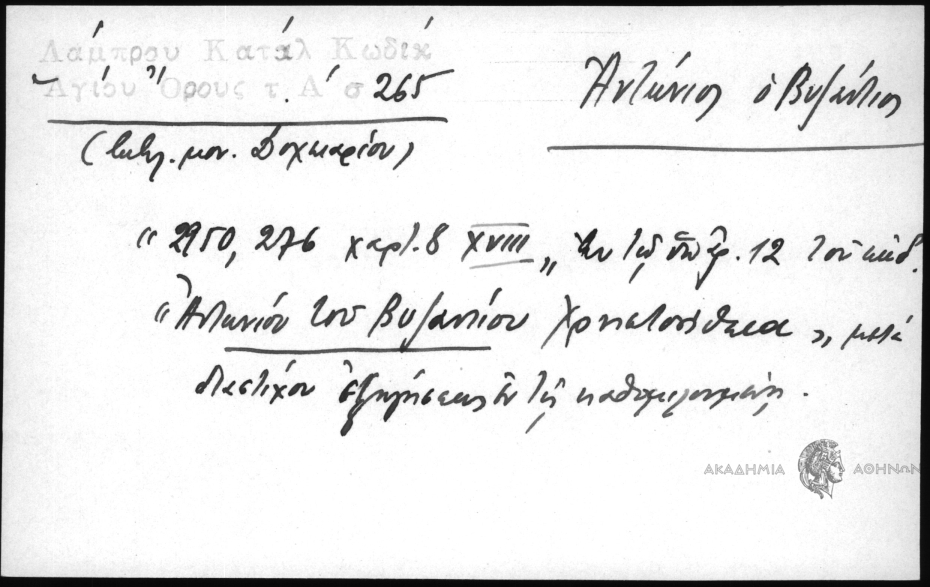 Λάμπρου Κατάλ Κωδίκ
Ἁγίου Ὄρους τ. Α΄ σ 265
Ἀντώνιος ὁ Βυζάντιος
(κατγ. μον. Δοχειαρίου)
"2950, 276 χαρτ. 8 XVIII" Ἐν τῷ ὑπ' ἀρ. 12 τοῦ κώδ.
"Ἀντωνίου τοῦ Βυζαντίου Χρηστοήθεια", μετὰ
διαστίχου ἐξηγήσεως ἐν τῇ καθομιλουμένῃ.
ΑΚΑΔΗΜΙΑ ΑΘΗΝΩΝ